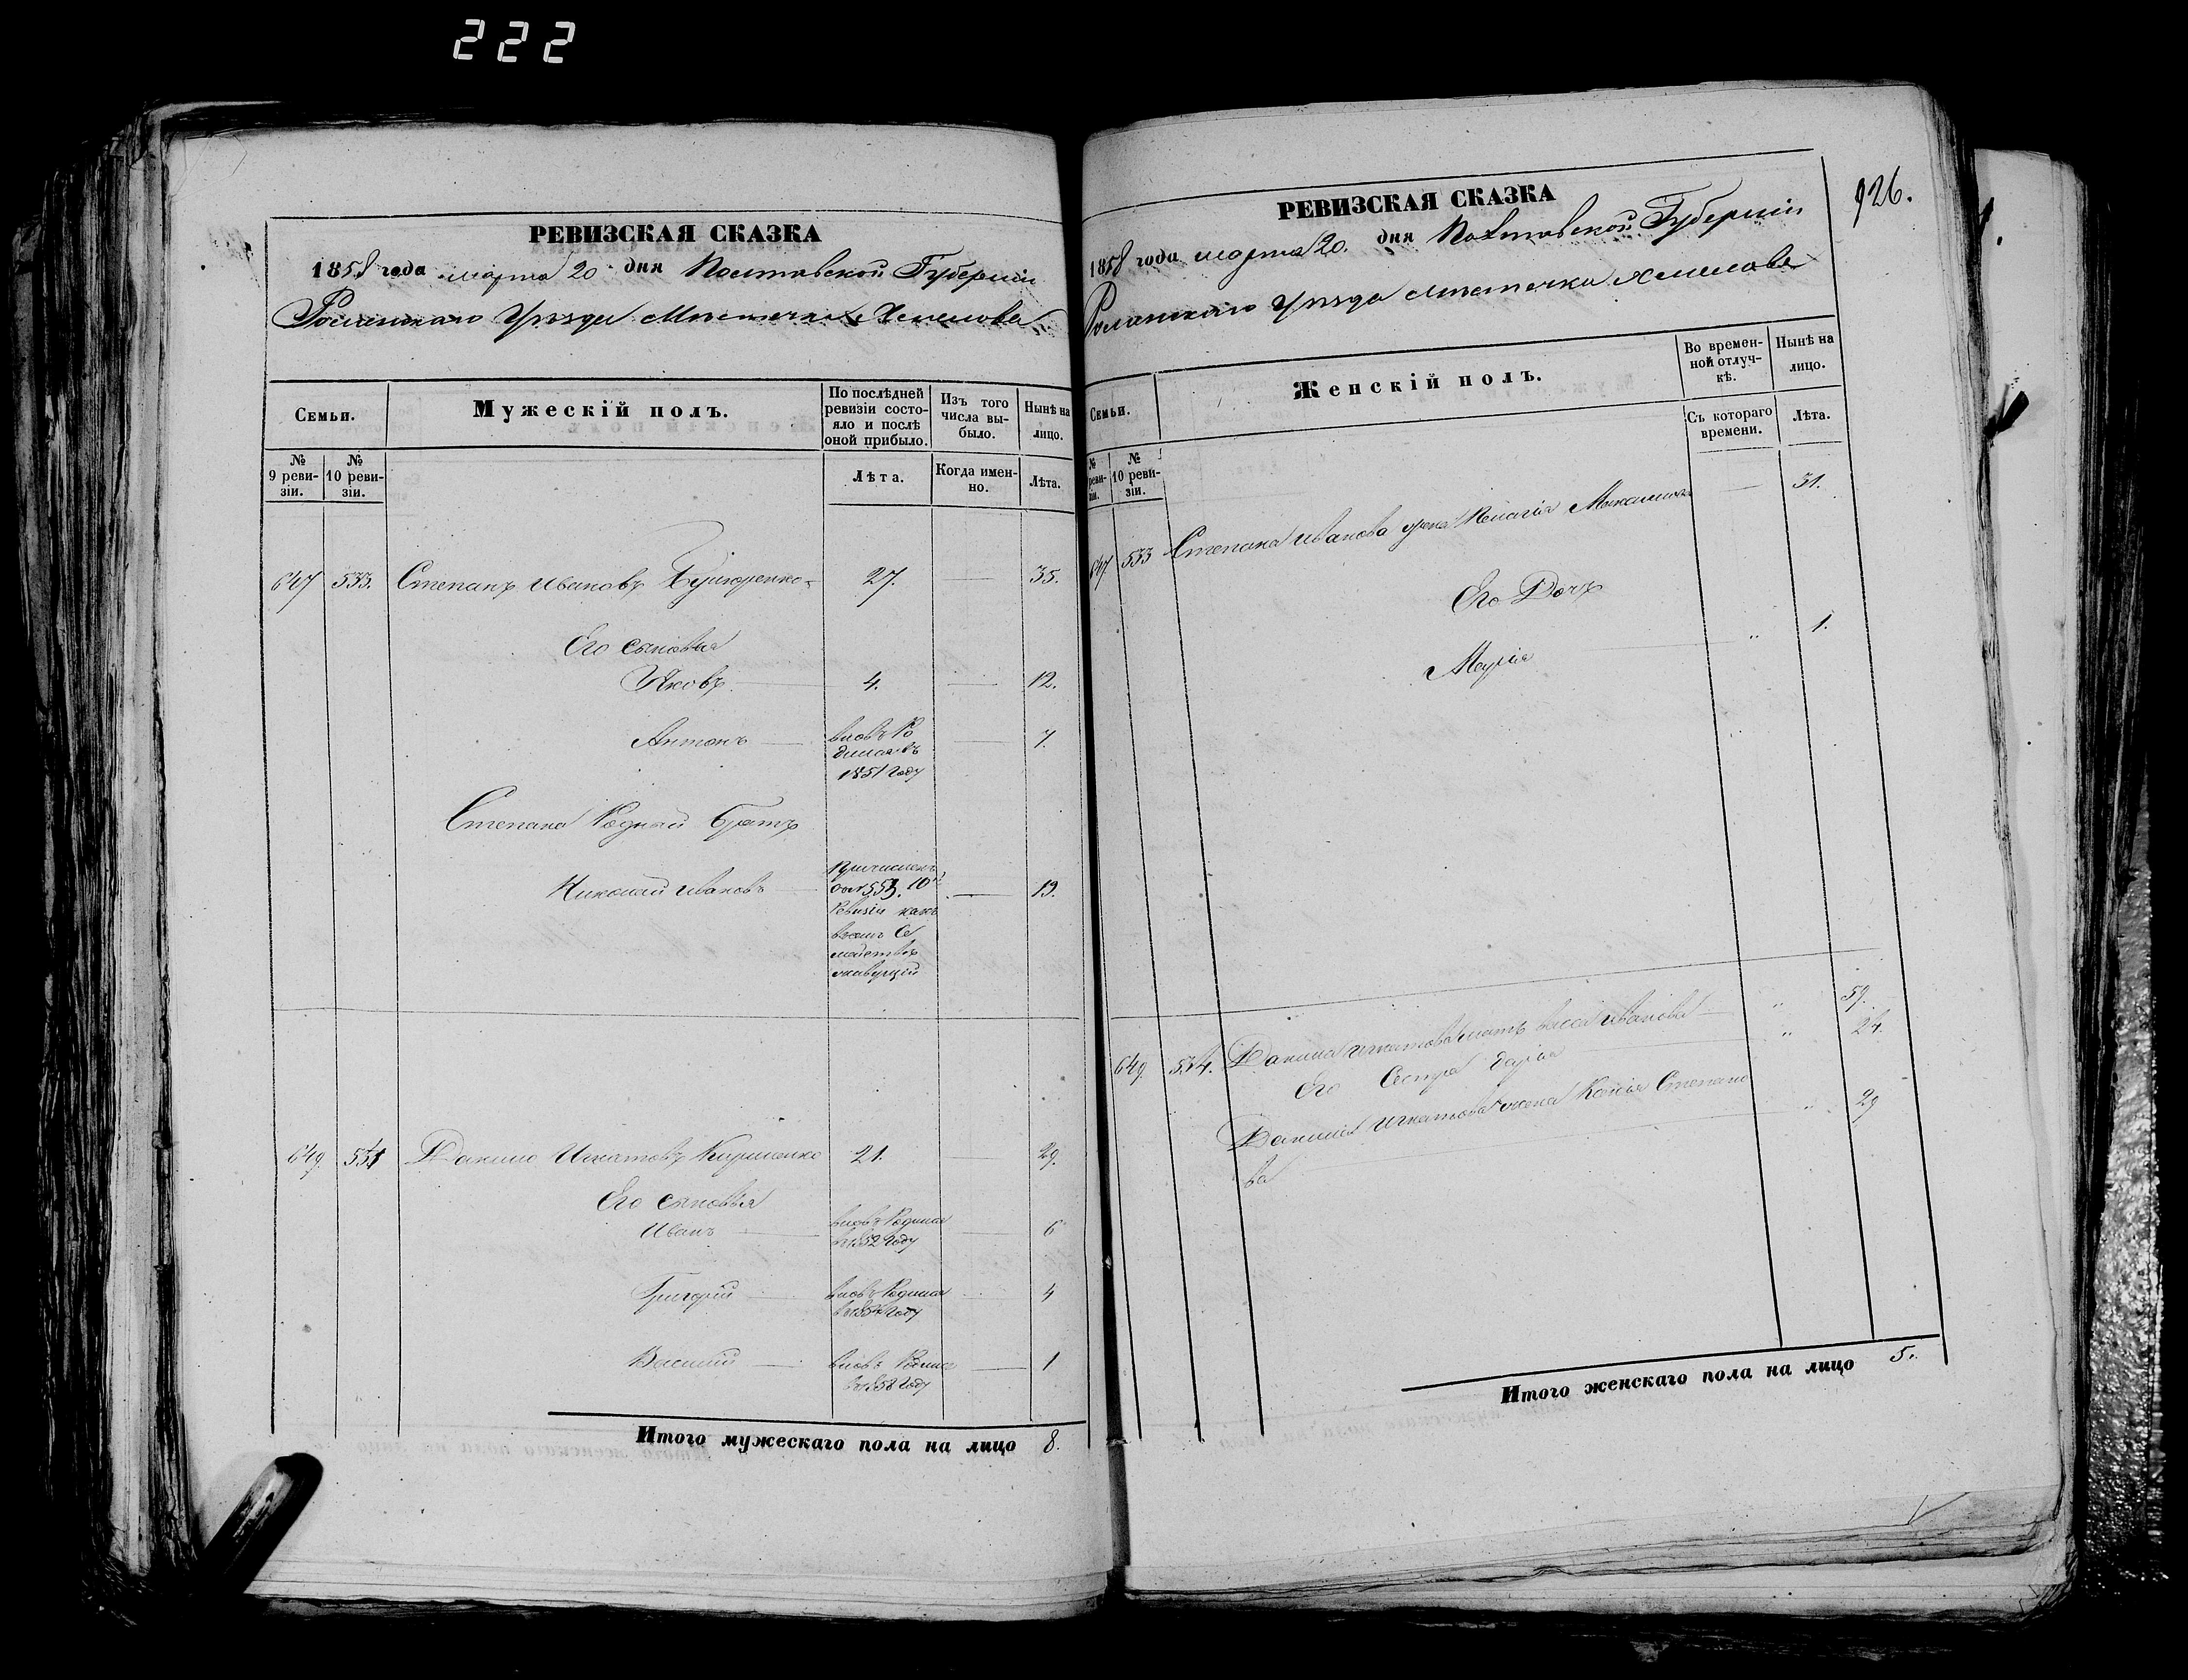 222
РЕВИЗСКАЯ СКАЗКА
1858 года марта 20 дня Полтавской Губерніи
Роменскаго Уѣзда Мѣстечка Хмелова
Семьи.
Мужескій полъ.
По послѣдней ревизіи состояло и послѣ оной прибыло.
Изъ того числа выбыло.
Нынѣ на лицо.
№ 9 ревизіи.
№ 10 ревизіи.
Лѣта.
Когда именно.
Лѣта.
647 533. Степанъ Ивановъ 27. — 35.
Его сыновья
Яковъ 4. — 12.
Антонъ вновь родился въ 1851 году — 7.
Степана Родный братъ
Николай Ивановъ Причисленъ 10й Ревизіи какъ Семействѣ живущій — 19.
649. 534 Данило Игнатовъ Кириленко 21. — 29.
Его сыновья
Иванъ вновь Родился в 1852 году — 6
Григорій вновь Родился в 1854 году — 4
Василій вновь Родился в 1858 году — 1
Итого мужескаго пола на лицо 8.
926.
РЕВИЗСКАЯ СКАЗКА
1858 года марта 20. дня Полтавской Губерніи
Роменскаго Уѣзда мѣстечка Хмелова
Семьи.
Женскій полъ.
Во временной отлучкѣ.
Нынѣ на лицо.
№ ревизіи.
№ 10 ревизіи.
Съ котораго времени.
Лѣта.
647 533 Степана Иванова жена Пелагія Максимова — 31.
Его Дочь
Марія „ 1.
649. 534. Данила Игнатова мать Васса Иванова „ 59.
Его Сестра Дарія „ 24.
Данила Игнатова жена Ксенія Степанова „ 29
Итого женскаго пола на лицо 5.